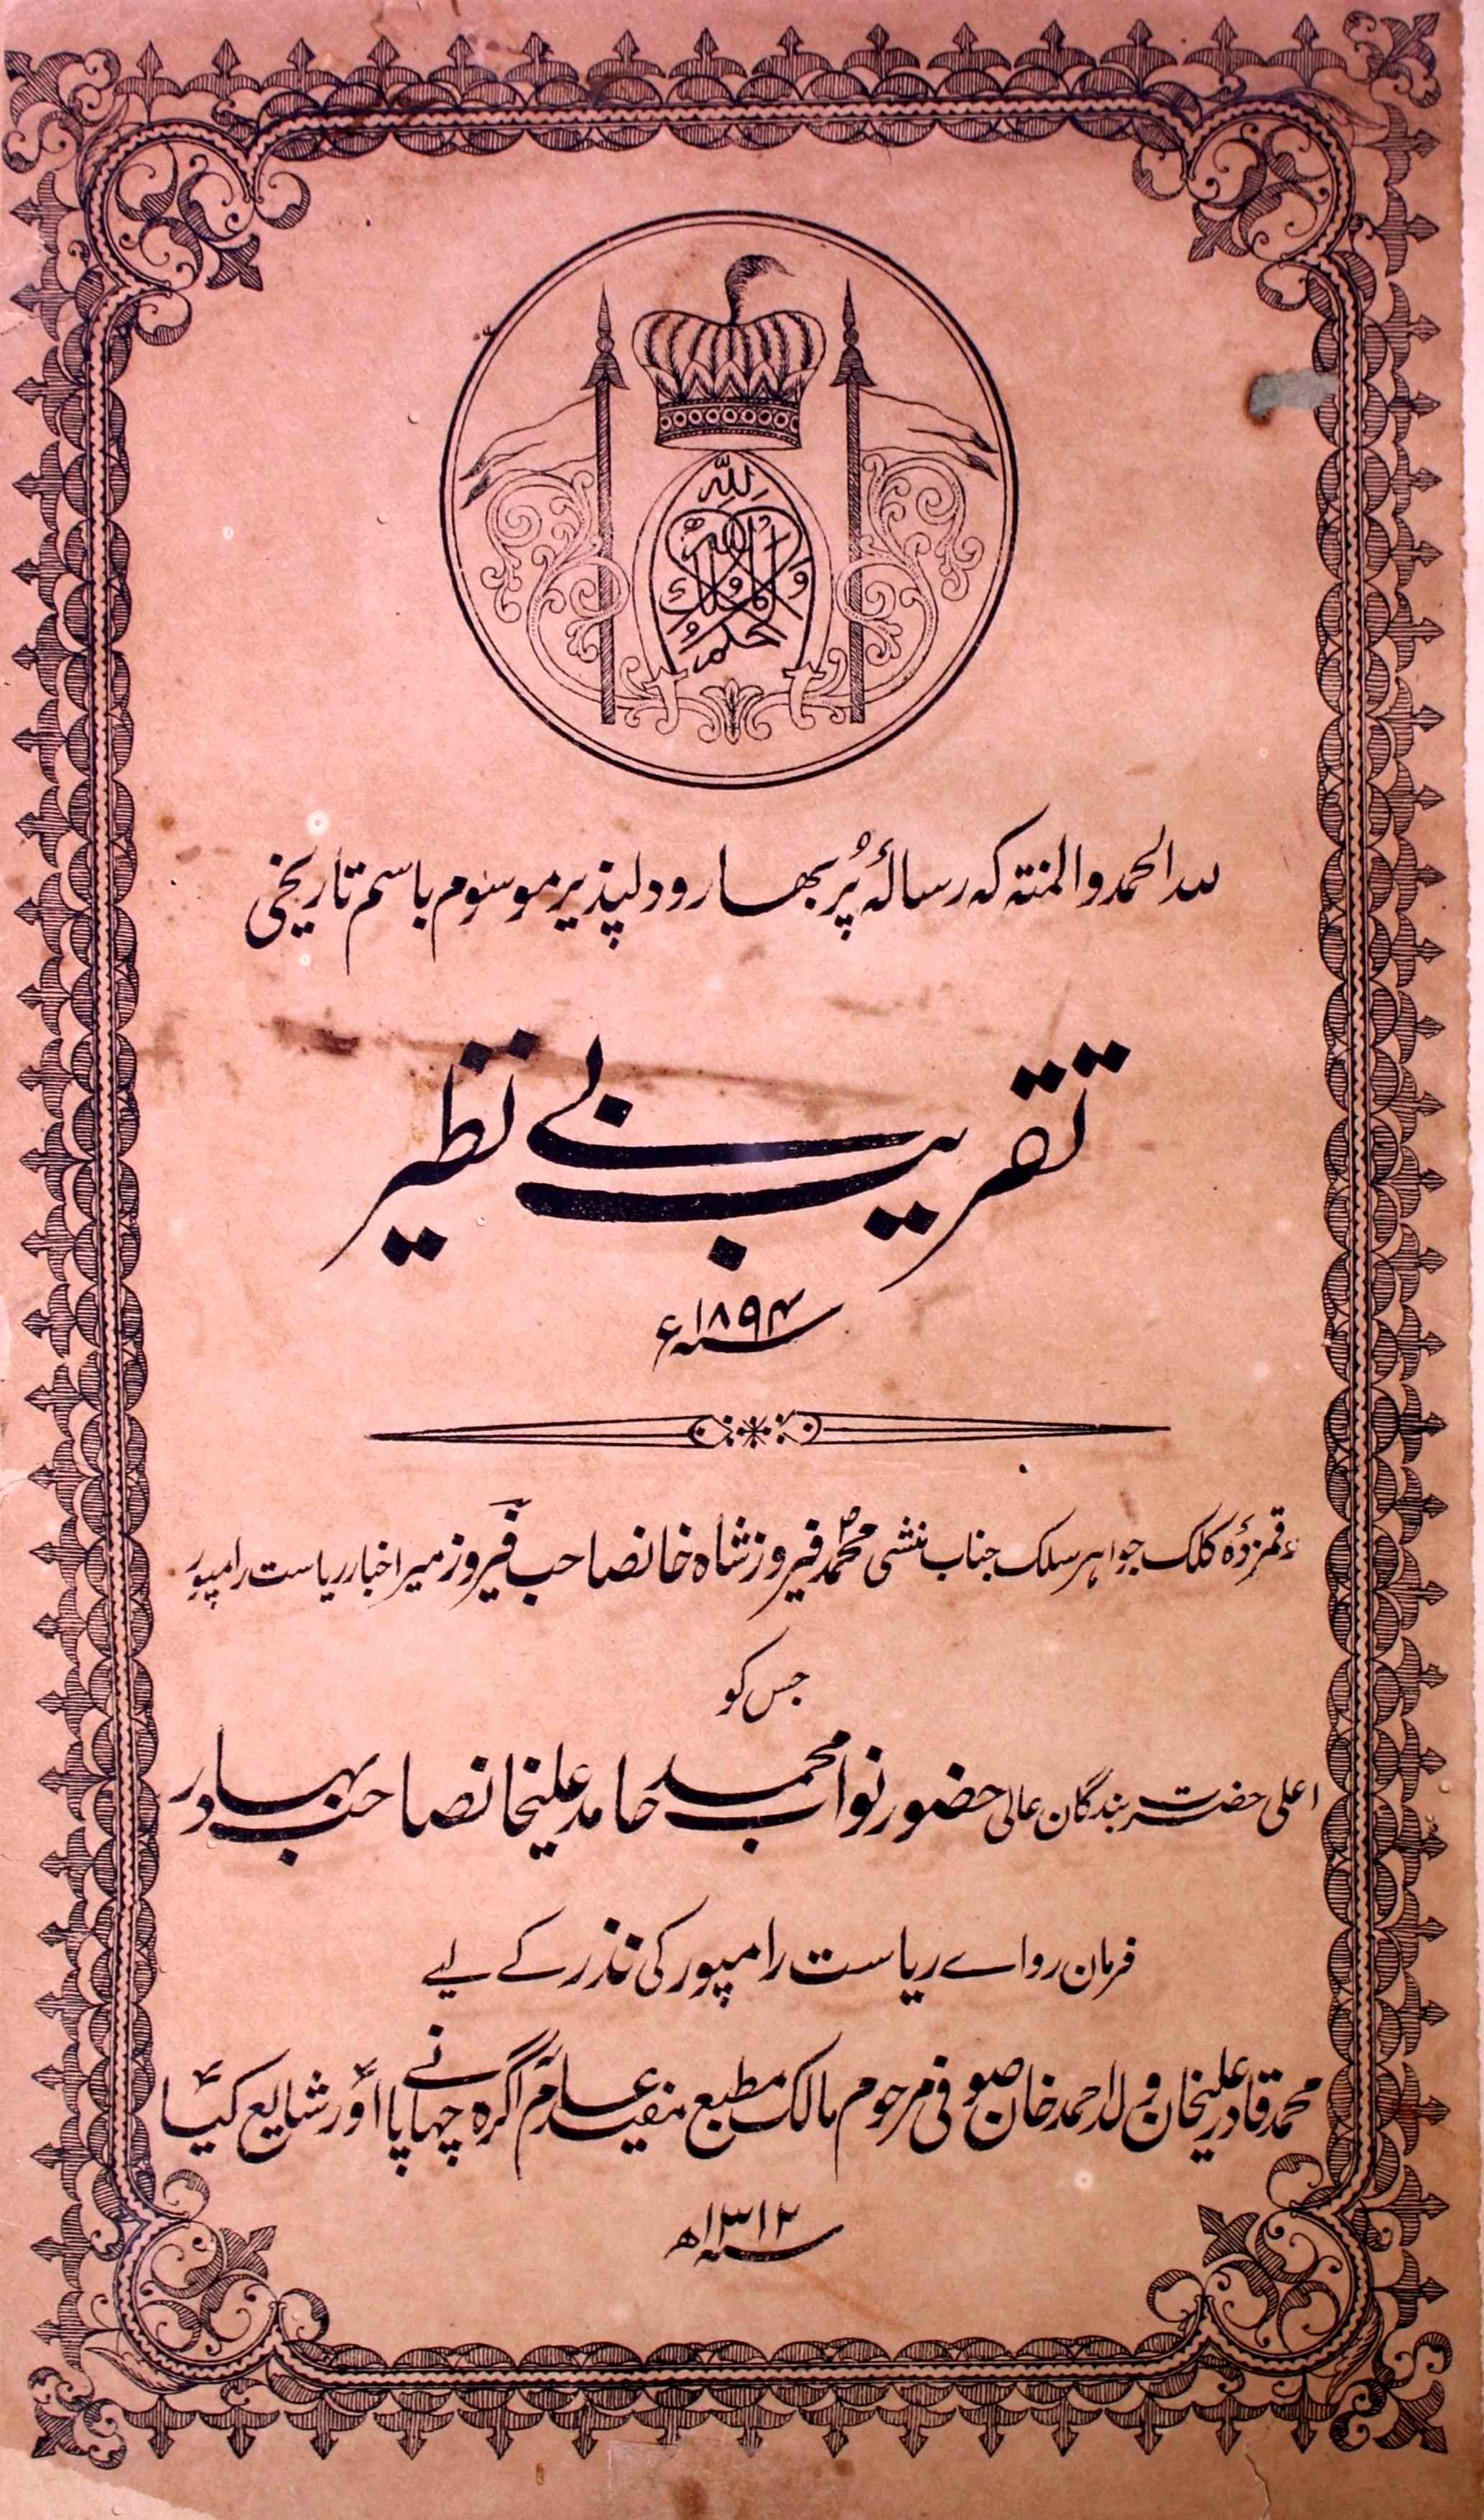 الملک للہ
والحکم للہ
للہ الحمد والمنتہ کہ رسالۂ پُر بھار و دلپذیر موسوم باسم تاریخی
تقریب بے نظیر
سنہ ۱۸۹۴ء
رقمزدۂ کلک جواہر سلک جناب منشی محمد فیروز شاہ خانصاحب فیروز میر اخبار ریاست رامپور
جس کو
اعلی حضرت بندگان عالی حضور نواب محمد حامد علیخانصاحب بہادر
فرمان رواے ریاست رامپور کی نذر کے لیے
محمد قادر علیخان ولد احمد خان صوفی مرحوم مالک مطبع مفید عام آگرہ نے چہاپا اور شایع کیا
سنہ ۱۳۱۲ھ